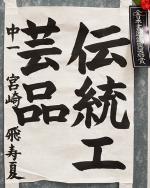 伝統工
芸品
中一 宮崎 飛寿夏